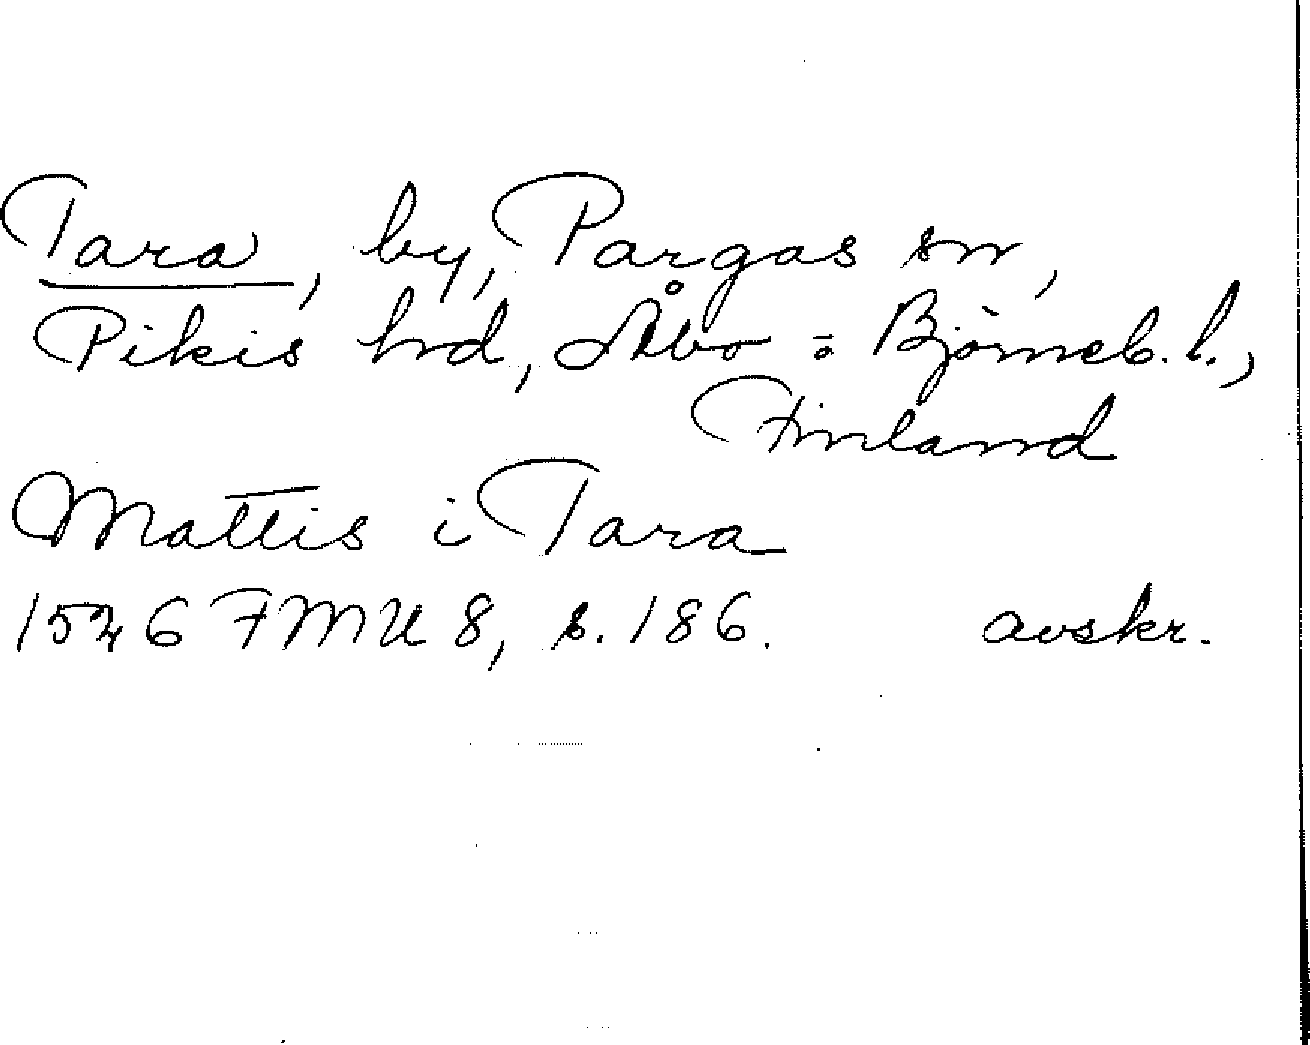 Tara, by, Pargas sn,
Pikis hd, Åbo = Björneb. l.,
Finland
Mattis i Tara
1526 FMU 8, s. 186. avskr.